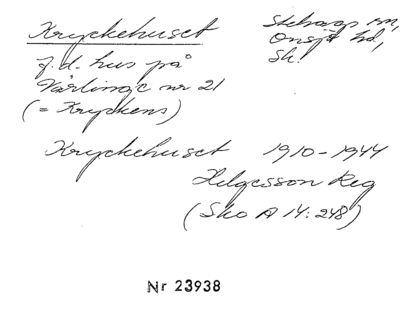 Kryckehuset
Stehags sn,
Onsjö hd,
Sk.
f.d. hus på
Värlinge nr 21
(= Kryckens)
Kryckehuset 1910-1944
Helgesson Reg
(Sko A 14:248)
Nr 23938